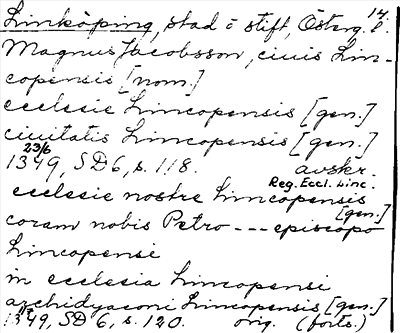 14.
Linköping, stad o stift, Österg. l.
Magnus Jacobsson, ciuis Lin-
copensis [nom.]
ecclesie Lincopensis [gen.]
ciuitatis Lincopensis [gen.]
23/6
1349, SD 6, s. 118. avskr.
Reg. Eccl. Linc.
ecclesie nostre Lincopensis
[gen.]
coram nobis Petro --- episcopo
Lincopensi
in ecclesia Lincopensi
archidyaconi Lincopensis [gen.]
1349, SD 6, s. 120. orig. (forts.)